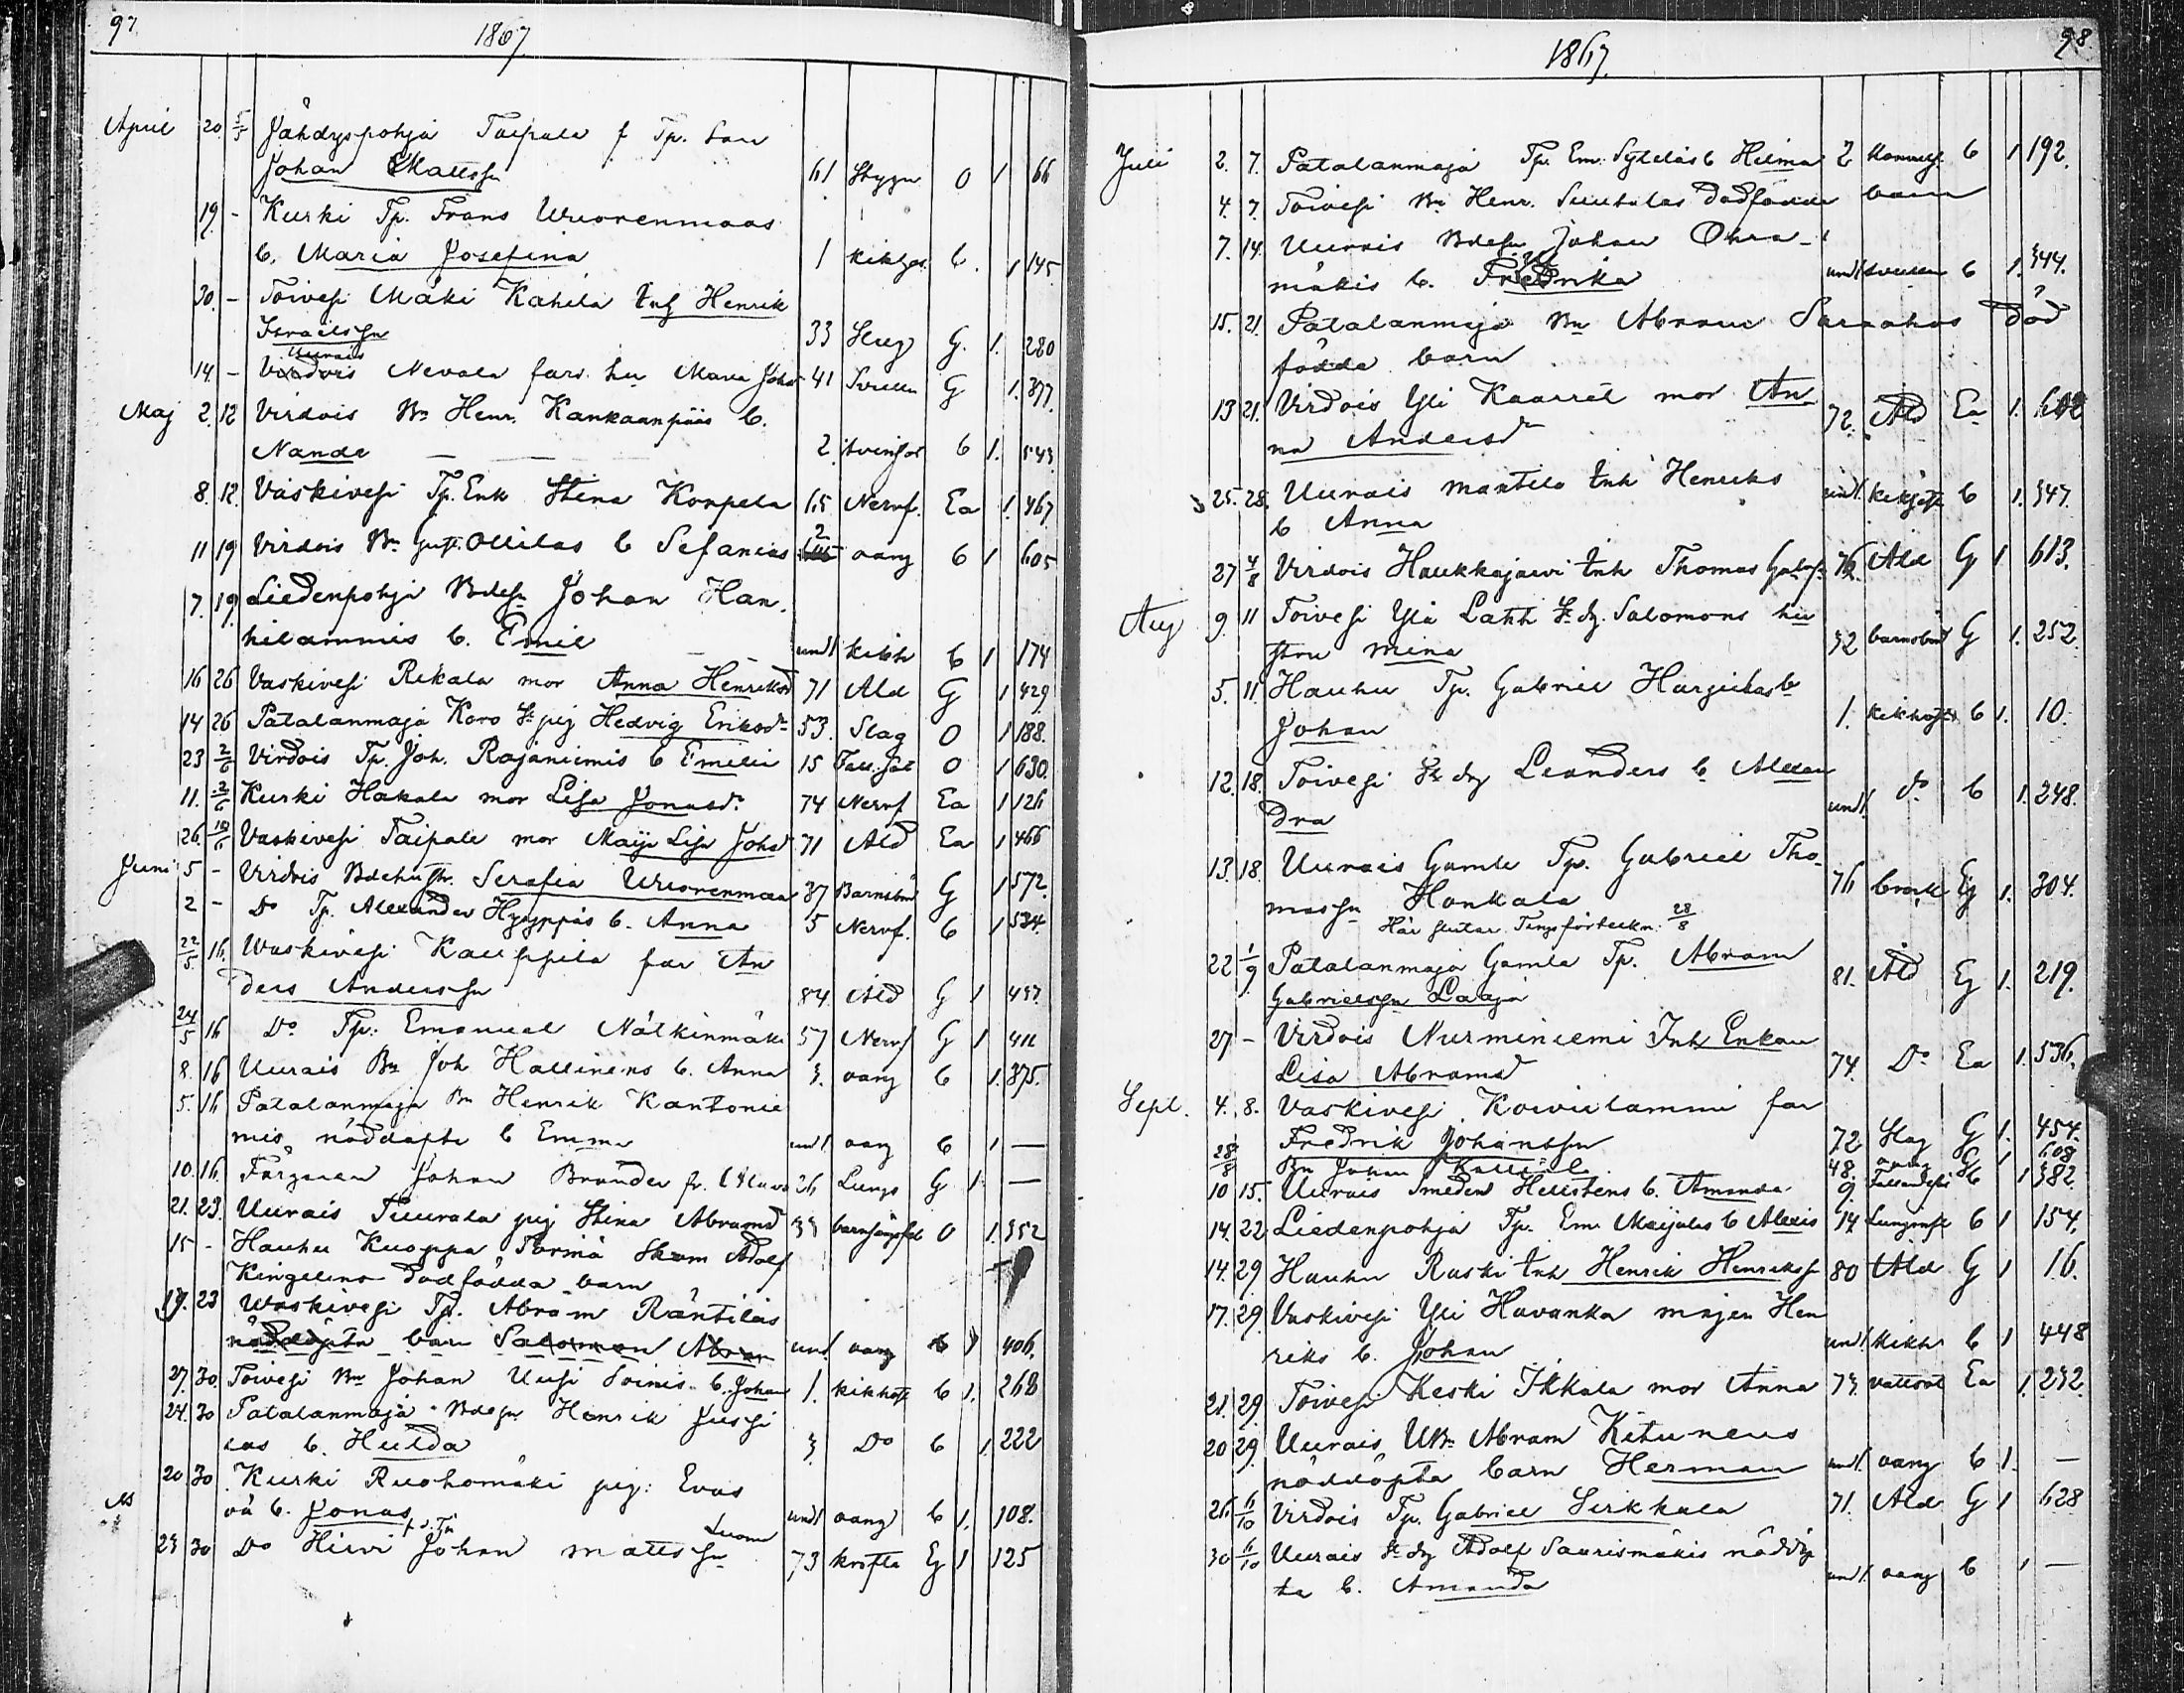 97.
1867
April 20 5/5 Jähdyspohja Taipale f Tp. Son
Johan Mattssn 61 Stygn O 1 66
19. - Kurki Tp. Frans Wuorenmaas
b. Maria Josefina 1 kikhos. b. 1 145
30. - Toivesi Mäki Kahila Inh Henrik
Israelssn 33 G. 1. 280
Uurais
14. - Nevala fars hu Maria Johsd 41 G 1. 377.
Maj 2 12 Virdois Bn Henr. Kankaanpääs b.
Nanda 2. b 1. 543.
8. 12. Vaskivesi Tp. Enk Stina Korpela 65 Nervf. Ea 1. 467
11 19 Virdois Bn Gust. Ollilas b Sefanias 2 oang b 1 605
7. 19. Liedenpohja Bdessn Johan Han-
hilammis b. Emil und 1 kikh b 1 174
16 26 Vaskivesi Rekala mor Anna Henriksd 71 Ald G 1 429
14 26 Patalanmaja Koro St. pig Hedvig Eriksdr 53. Slag O 1 188.
23 2/6 Virdois Tp. Joh. Rajaniemis b Emilia 15 Fall. sot O 1 630.
11. 2/6 Kurki Hakala mor Lisa Jonasdr. 74 Nervf Ea 1 126
26. 10/6 Vaskivesi Taipale mor Maija Lisa Johsd 71 Ald Ea 1 466
Juni 5 - Virdois Bdehustr. Serafia Wuorenmaa 37 Barnsbörd G 1 572.
2 - Do Tp. Alexander Hyyppäs b. Anna 5 Nervf. b 1 534.
22/5 16. Waskivesi Kauppila far An
ders Anderssn 84. Ald G 1 437.
24/5 16 Do Tp: Emanuel Nälkinmäki 57 Nervf G 1 411
8. 16 Uurais Bn Joh Hallinens b. Anna 3. oang b 1. 375.
5. 16 Patalanmaja Bn Henrik Kantonie
mis nöddöpte b Emma und 1. oang b 1 —
10. 16. Färgaren Johan Brander fr. 26 Lungs G 1. —
21. 23. Uurais Tuurala pig Stina Abramsd 33 barnsängsfeb O 1. 352
15 - Hauhu Kuoppa Törmä Skom Adolf
Kingelins Dödfödda barn
19. 23 Waskivesi Tp. Abram Räntiläs
nöddöpta barn Salomon Abram und. oang b 1 406.
27. 30. Toivesi Bn Johan Uusi Soinis b. Johan 1. kikhost b 1. 268
24. 30 Patalanmaja Bdessn Henrik Jussi
las b. Hulda 3 Do b 1. 222
20. 30 Kurki Ruohomäki pig: Evas
oä b. Jonas und 1 oang b 1. 108.
23 30 Do Hirvi f.d. Tp Johan Mattssn Luoma 73 kräfta Eg 1 125
98.
1867.
Juli 2. 7. Patalanmaja Tp. Em. Syteläs b Hilma 2 b 1 192.
4. 7. Toivesi Bn Henr. Suutalas Dödfödda barn
7. 14. Uurais Bdessn Johan Ohra-
mäkis b. Fredrika und 1 b 1. 344.
15. 21. Patalanmaja Bn Abram Saraahos Död
födda barn
13 21. Virdois Yli Kaarrel mor An
na Andersdr 72. Ald Ea 1. 602
25. 28. Uurais Mantila Inh Henriks
b Anna und 1. kikhost b 1. 347.
27 4/8 Virdois Haukkajärvi Inh Thomas 76. Ald G 1 613.
Aug 9. 11 Toivesi Ylä Lahh St. dg. Salomons hu
stru Mina 32 barnsbörd G 1. 252.
5. 11 Hauhu Tp. Gabriel Harjukas b
Johan 1. kikhost b 1. 10.
12. 18. Toivesi St dg Leanders b. Alexan
dra und 1. Do b 1. 248.
13. 18. Uurais Gamle Tp. Gabriel Tho-
massn Honkala 76 bråck Eg 1. 304.
Här slutar Tingsförteckn. 28/8
22 1/9 Patalanmaja Gamla Tp. Abram
Gabrielssn Laaja 81. Ald Eg 1. 219.
27 - Virdois Nurminiemi Inh Enkan
Lisa Abramsd 74. Do Ea 1. 536.
Sept. 4. 8. Vaskivesi Koivulammi far
Fredrik Johanssn 72 Slag G 1. 454.
28/8 Bn Johan 48. oang G 1 608
10 15. Uurais Smeden Hellstens b. Amanda 9. b 1 382.
14. 22 Liedenpohja Tp. Em. Maijalas b Alexis 14. b 1 154.
14. 29 Hauhu Raski Inh Henrik Henrikssn 80 Ald G 1 16.
17. 29. Vaskivesi Yli Havanka mäjen Hen
riks b. Johan und 1. kikh b 1 448
21. 29. Toivesi Keski Ikkala mor Anna 73. vattsot Ea 1. 232.
20 29 Uurais UBn Abram Kitunens
nöddöpta barn Herman und 1. oang b 1. —
26. 6/10 Virdois Tp. Gabriel Sirkkala 71. Ald G 1 628
30 6/10 Uurais St dg Adolf Saurismäkis nöddöp
ta b. Amanda und 1. oang b 1 —